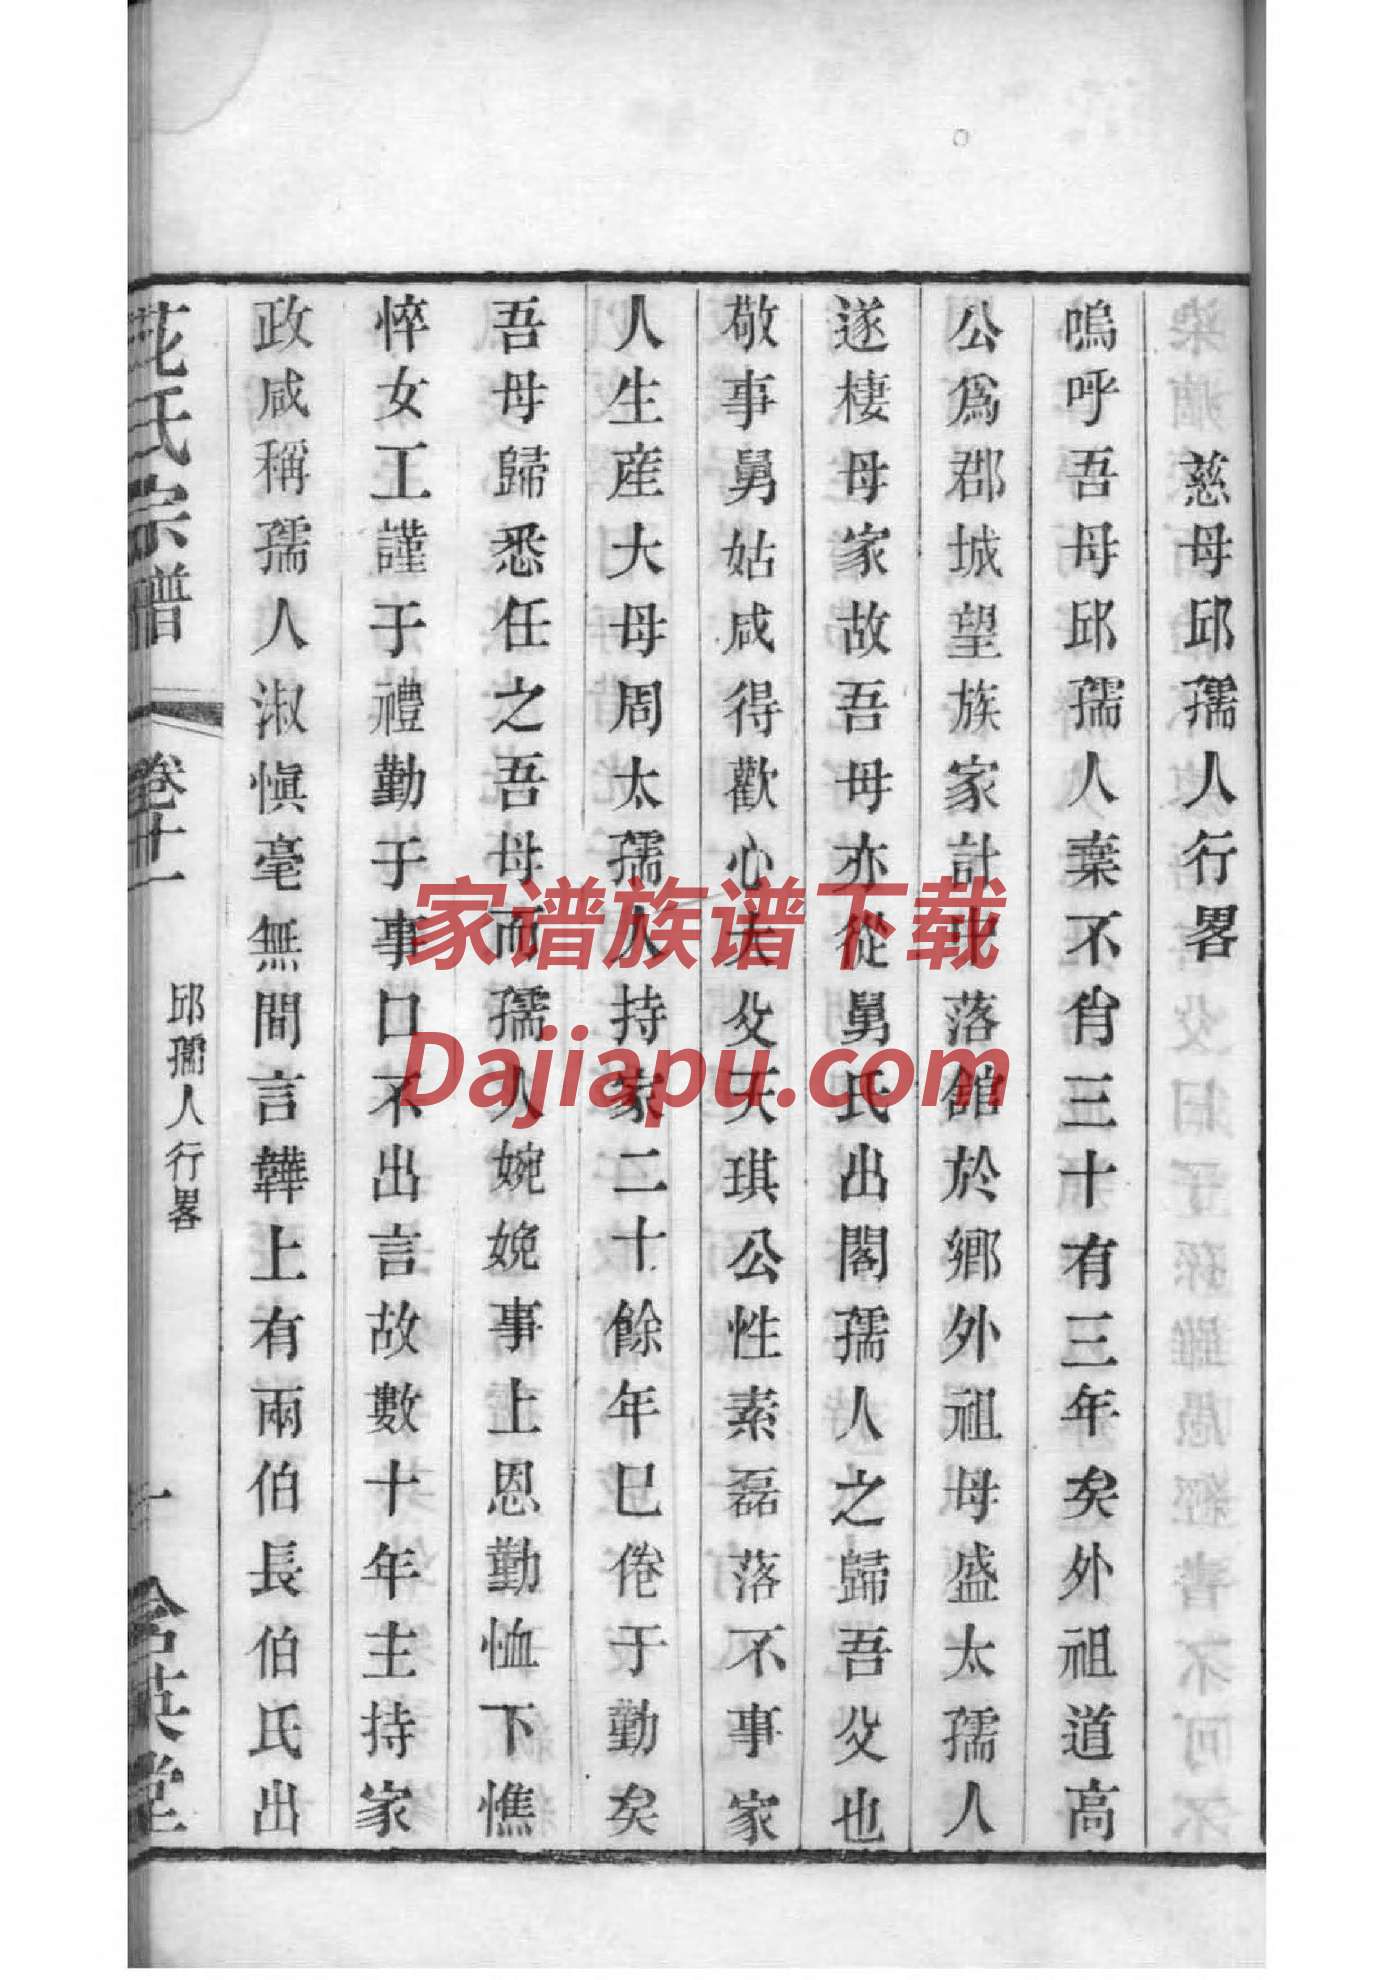 慈母邱孺人行畧
嗚呼吾母邱孺人棄不肖三十有三年矣外祖道高
公爲郡城望族家計中落館於鄉外祖母盛太孺人
遂棲母家故吾母亦從舅氏出閣孺人之歸吾父也
敬事舅姑咸得歡心大父天琪公性素磊落不事家
人生産大母周太孺人持家二十餘年已倦于勤矣
吾母歸悉任之吾母而孺人婉娩事上恩勤恤下憔
悴女工謹于禮勤于事口不出言故數十年主持家
政咸稱孺人淑慎毫無間言韡上有兩伯長伯氏出
花氏宗譜
卷十一
邱孺人行畧
一
含英堂
家谱族谱下载
Dajiapu.com